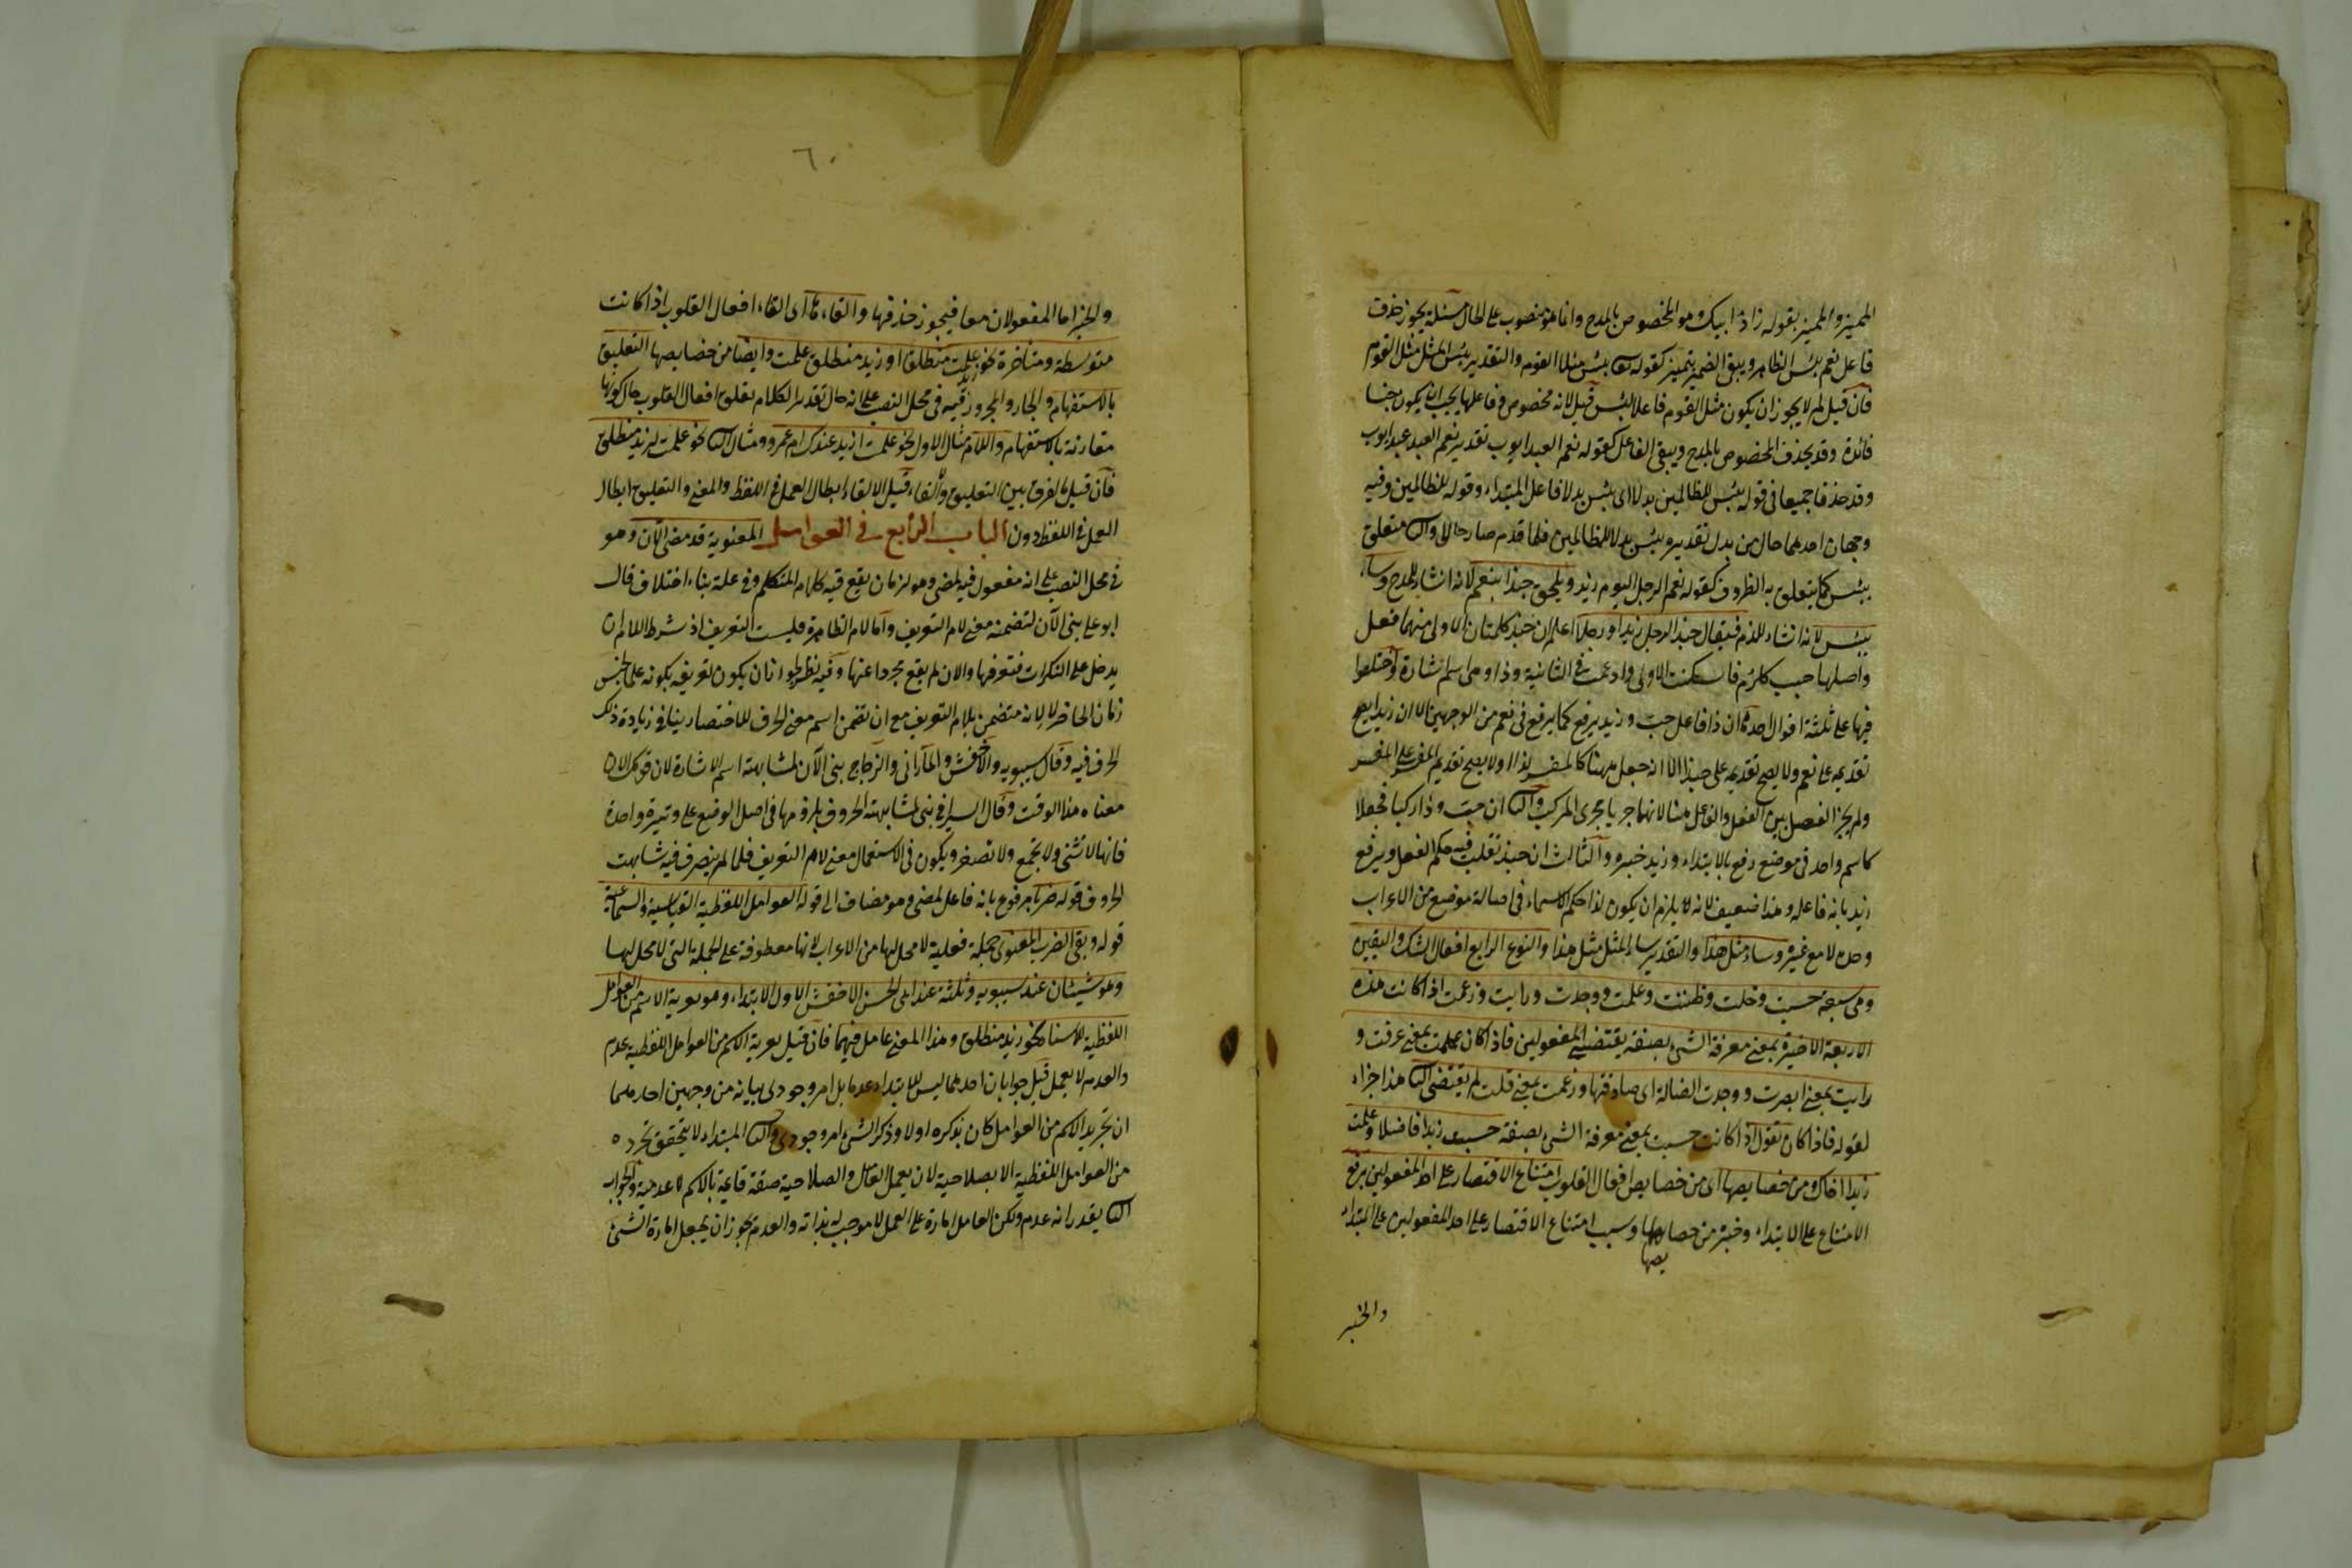 المميز والمميز بقوله زاد ابيك وهو المخصوص بالمدح وانما هو منصوب على الحال مسئلة يجوز حذف
فاعل نعم بئس الظاهر ويبقى الضمير بتمييز كقوله تعا بئس مثلا القوم والتقدير بئس المثل مثل القوم
فان قيل لم لا يجوز ان يكون مثل القوم فاعلا لبئس قيل لانه مخصوص وفاعلها يجب ان يكون جنسا
فائدة وقد يحذف المخصوص بالمدح ويبقى الفاعل كقوله نعم العبد ايوب تقديره نعم العبد عبد ايوب
وقد حذفا جميعا في قوله بئس للظالمين بدلا اى بئس بدلا فاعل المبتداء وقوله للظالمين وفيه
وجهان احدهما حال من بدل تقديره بئس بدلا للظالمين فلما قدم صار حالا والثا متعلق
ببئس كما يتعلق به الظروف كقوله نعم الرجل اليوم زيد ويلحق حبذا بنعم لانه انشاء للمدح وساء
ببئس لانه انشاء للذم فيقال حبذا الرجل زيد او رجلا اعلم ان حبذ كلمتان الاولى منهما فعل
واصلها حبب ككرم فاسكنت الاولى وادغمت في الثانية وذا وهى اسم اشارة واختلفوا
فيها على ثلثة اقوال احدها ان ذا فاعل حبّ وزيد يرفع كما يرفع في نعم من الوجهين الا ان زيدا يصح
تقديمه على نعم ولا يصح تقديمه على حبذا الا انه جعل ههنا كالمفسر لذا ولا يصح تقديم المفسر على المفسر
ولم يجز الفصل بين الفعل والفاعل هنا لانهما جريا مجرى المركب والثا ان حبّ وذا ركبا فجعلا
كاسم واحد في موضع رفع بالابتداء وزيد خبره والثالث ان حبذ تغلب فيه حكم الفعل ويرفع
زيد بانه فاعله وهذا ضعيف لانه لا يلزم ان يكون لذا حكم الاسماء في اصالة موضع من الاعراب
وحده لا مع غيره وساء مثل هذا والتقدير ساء المثل مثل هذا والنوع الرابع افعال الشك واليقين
وهى سبعة حسبت وخلت وظننت وعلمت ووجدت ورايت وزعمت اذا كانت هذه
الاربعة الاخيرة بمعنى معرفة الشئ بصفة يقتضى المفعولين فاذا كان علمت بمعنى عرفت و
رايت بمعنى ابصرت ووجدت الضالة اى صادفتها وزعمت بمعنى قلت لم يقتضى الثا هذا جزاء
لقوله فاذا كان تقول اذا كانت حسبت بمعنى معرفة الشئ بصفة حسبت زيدا فاضلا وعلمت
زيدا اخاك ومن خصايصها اى من خصايص افعال القلوب امتناع الاقتصار على احد المفعولين يرفع
الامتناع على الابتداء وخبره من خصايصها وسبب امتناع الاقتصار على احد المفعولين على المبتداء
والخبر
٦٠
والخبر اما المفعولان معا فيجوز حذفها والغاءها اى الغاء افعال القلوب اذا كانت
متوسطة ومتاخرة نحو زيد علمت منطلق او زيد منطلق علمت وايضا من خصايصها التعليق
بالاستفهام والجار والمجرور فيه في محل النصب على انه حال تقدير الكلام تعلق افعال القلوب حال كونها
مقارنة بالاستفهام واللام مثال الاول نحو علمت ازيد عندك ام عمرو ومثال الثا نحو علمت لزيد منطلق
فان قيل ما الفرق بين التعليق والغاء قيل الالغاء ابطال العمل في اللفظ والمعنى والتعليق ابطال
العمل في اللفظ دون الباب الرابع في العوامل المعنوية قد مضى الآن وهو
في محل النصب على انه مفعول فيه لمضى وهو لزمان يقع فيه كلام المتكلم وفي علة بناءه اختلاف قال
ابو على بنى الآن لتضمنه معنى لام التعريف واما لام الظاهرة فليست للتعريف اذ شرط اللام ان
يدخل على النكرات فتعرفها والان لم يقع مجردا عنها وفيه نظر لجواز ان يكون تعريفه بكونه علما لجنس
زمان الحاضر لا لانه متضمن بلام التعريف مع ان تضمن اسم معنى الحرف للاختصار ينافي زيادة ذلك
الحرف فيه وقال سيبويه والاخفش والمازنى والزجاج بنى الآن لمشابهته اسم الاشارة لان قولك الان
معناه هذا الوقت وقال السيرافي بنى لمشابهته الحروف بلزومها في اصل الوضع على وتيرة واحدة
فانها لا تثنى ولا تجمع ولا تصغر ويكون في الاستعمال معنى لام التعريف فلما لم يتصرف فيه شابهت
الحروف قوله ضربا مرفوع بانه فاعل لمضى وهو مضاف الى قوله العوامل اللفظية القياسية والسماعية
قوله وبقى الضرب المعنوى جملة فعلية لا محل لها من الاعراب لانها معطوفة على الجملة التى لا محل لها
وهو شيئان عند سيبويه وثلثة عند ابى الحسن الاخفش الاول الابتداء وهو تعرية الاسم من العوامل
اللفظية للاسناد نحو زيد منطلق وهذا المعنى عامل فيهما فان قيل تعرية الاسم من العوامل اللفظية عدم
والعدم لا يعمل قيل جوابان احدهما ليس للابتداء عدما بل امر وجودى بيانه من وجهين احدهما
ان تجريد الاسم من العوامل كان بذكره اولا وذكر الشئ امر وجودى والثا المبتداء لا يتحقق تجرده
من العوامل اللفظية الا بصلاحية لان يعمل العامل والصلاحية صفة قائمة بالاسم لا عدمية والجواب
الثا يقدر انه عدم ولكن العامل امارة على العمل لا موجب له بذاته والعدم يجوز ان يجعل امارة الشئ